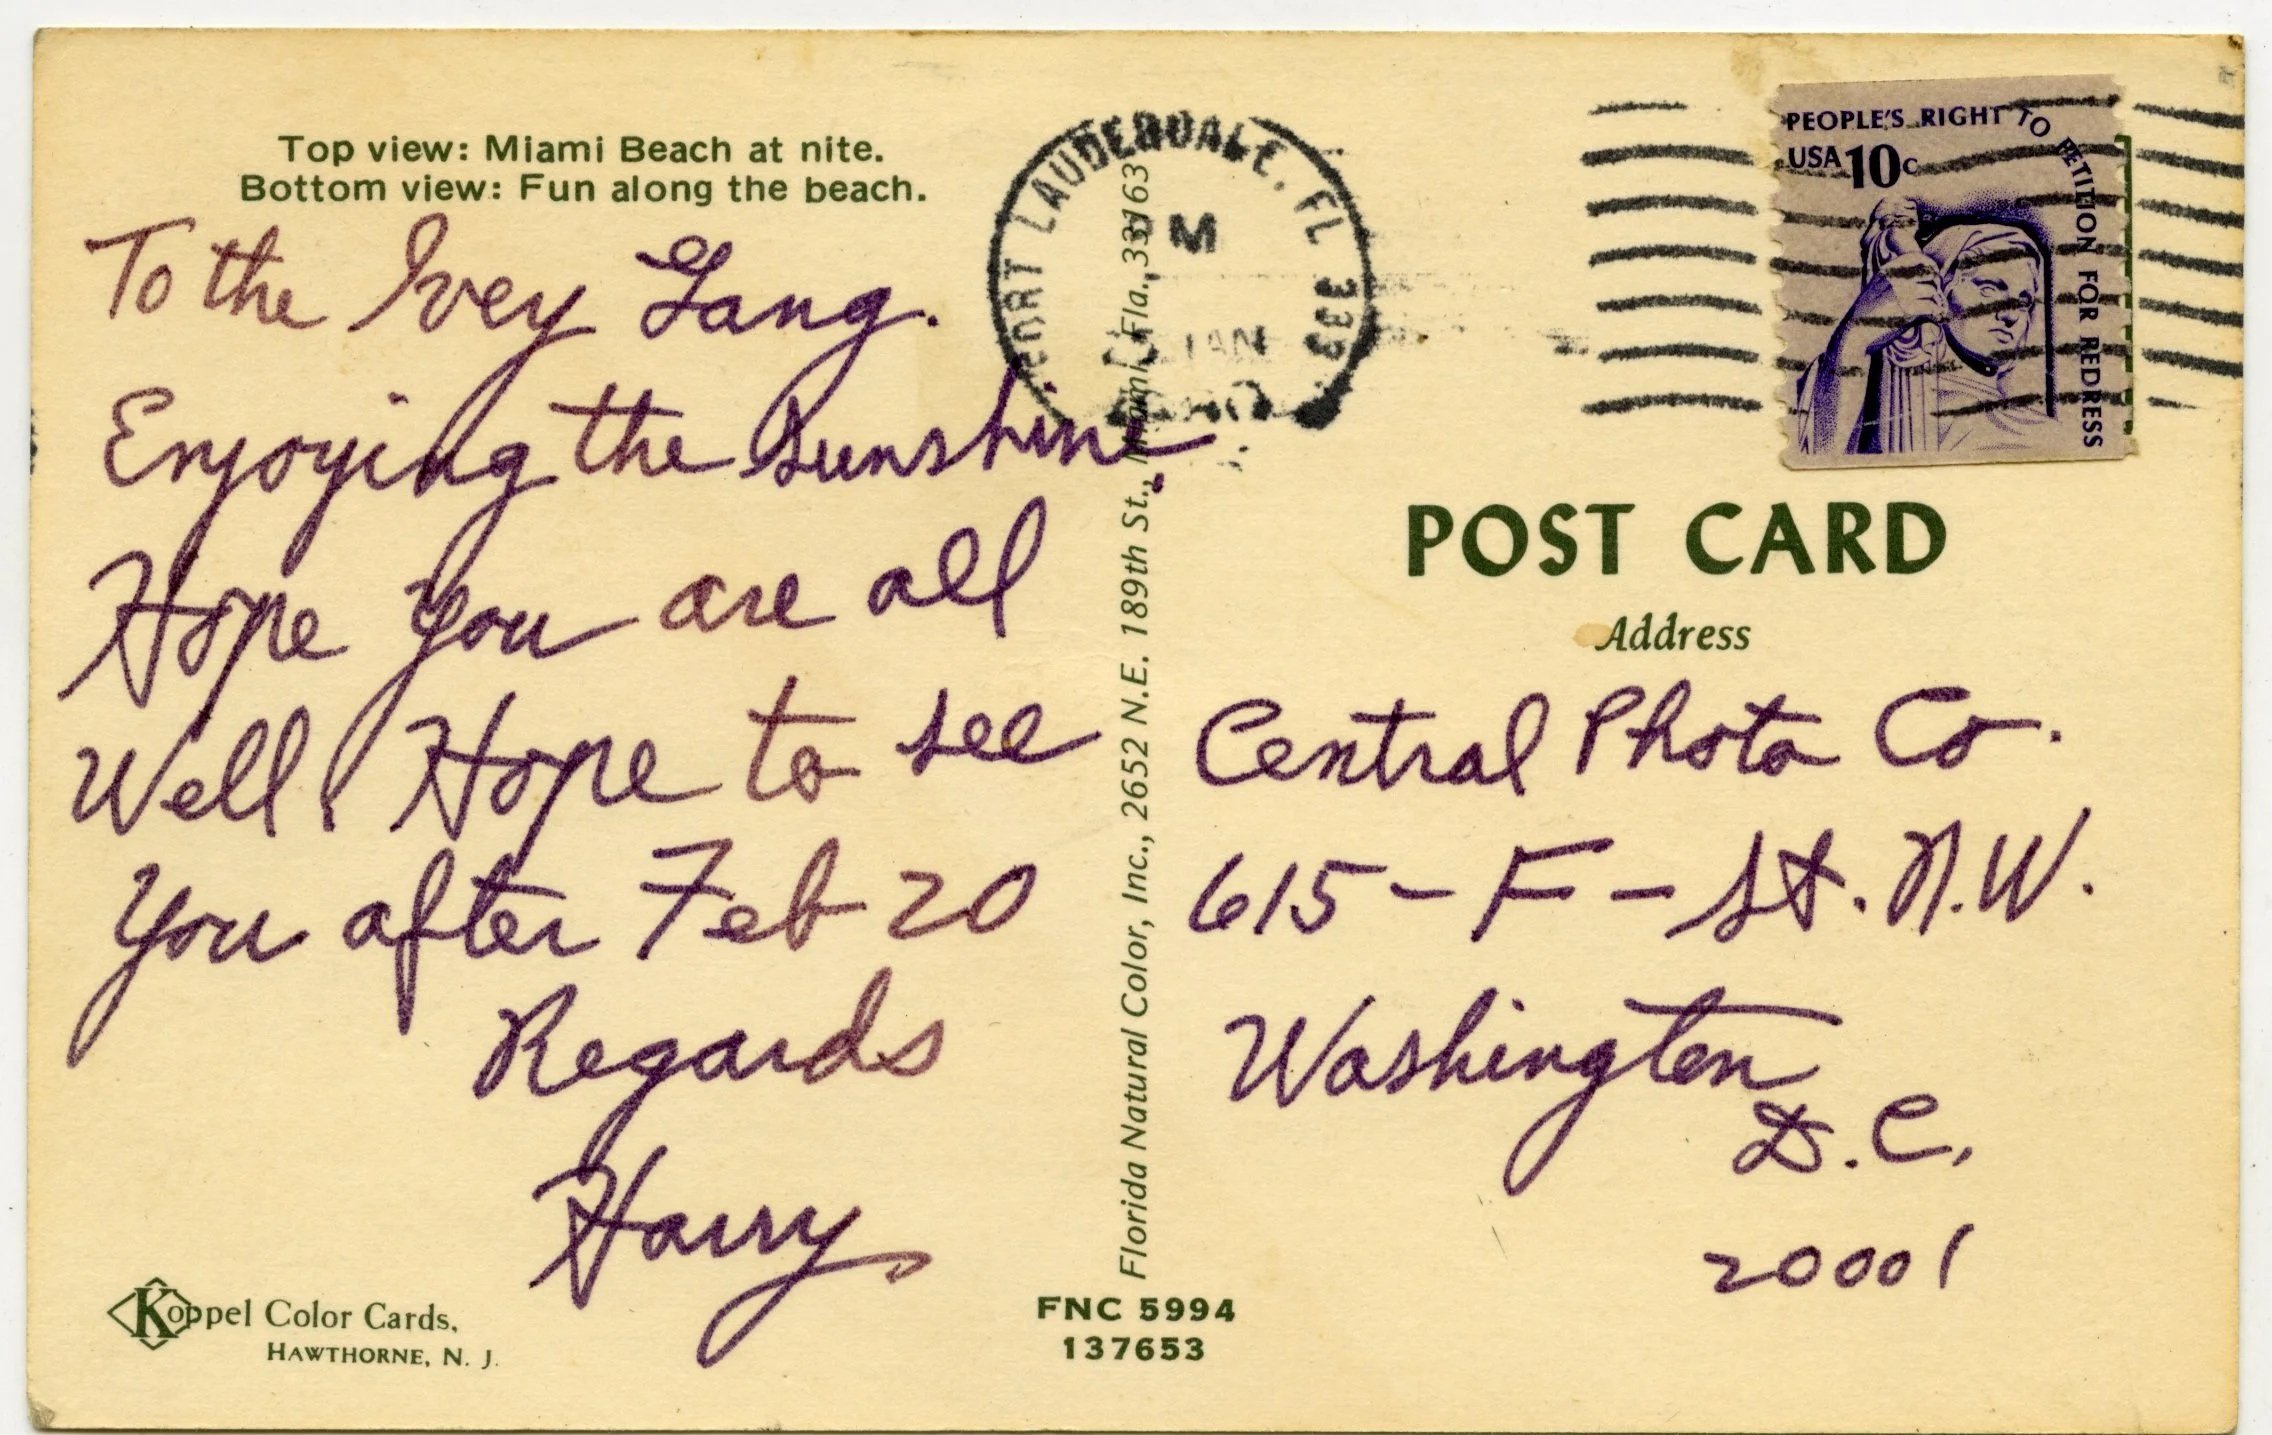 Top view: Miami Beach at nite.
Bottom view: Fun along the beach.
To the Ivey Gang.
Enjoying the Sunshine.
Hope you are all
Well. Hope to see
You after Feb 20
Regards
Harry
Koppel Color Cards.
HAWTHORNE, N. J.
Florida Natural Color, Inc., 2652 N.E. 189th St., Miami, Fla., 33163
FNC 5994
137653
FORT LAUDERDALE, FL 333
M
JAN
PEOPLE'S RIGHT TO PETITION FOR REDRESS
USA 10c
POST CARD
Address
Central Photo Co.
615 - F - St. N.W.
Washington
D.C.
20001